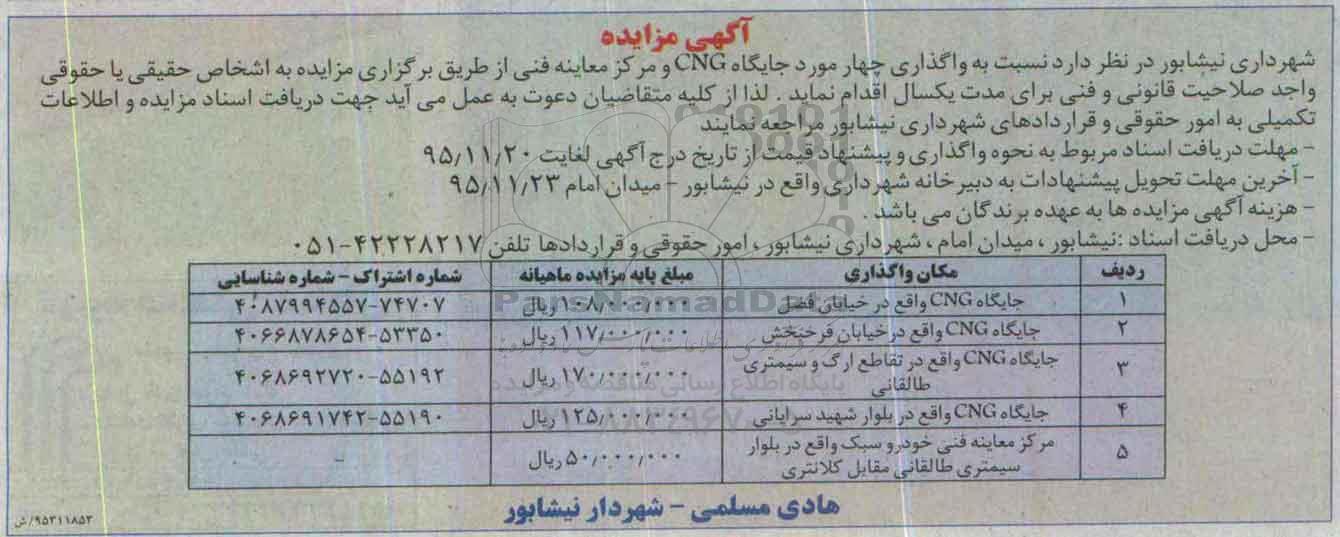 آگهی مزایده
شهرداری نیشابور در نظر دارد نسبت به واگذاری چهار مورد جایگاه CNG و مرکز معاینه فنی از طریق برگزاری مزایده به اشخاص حقیقی یا حقوقی
واجد صلاحیت قانونی و فنی برای مدت یکسال اقدام نماید . لذا از کلیه متقاضیان دعوت به عمل می آید جهت دریافت اسناد مزایده و اطلاعات
تکمیلی به امور حقوقی و قراردادهای شهرداری نیشابور مراجعه نمایند
- مهلت دریافت اسناد مربوط به نحوه واگذاری و پیشنهاد قیمت از تاریخ درج آگهی لغایت ۹۵/۱۱/۲۰
- آخرین مهلت تحویل پیشنهادات به دبیرخانه شهرداری واقع در نیشابور - میدان امام ۹۵/۱۱/۲۳
- هزینه آگهی مزایده ها به عهده برندگان می باشد .
- محل دریافت اسناد :نیشابور ، میدان امام ، شهرداری نیشابور ، امور حقوقی و قراردادها تلفن ۴۲۲۲۸۲۱۷-۰۵۱
ردیف مکان واگذاری مبلغ پایه مزایده ماهیانه شماره اشتراک - شماره شناسایی
۱ جایگاه CNG واقع در خیابان فضل ۱۰۸/۰۰۰/۰۰۰ ریال ۴۰۸۷۹۹۴۵۵۷-۷۴۷۰۷
۲ جایگاه CNG واقع در خیابان فرحبخش ۱۱۷/۰۰۰/۰۰۰ ریال ۴۰۶۶۸۷۸۶۵۴-۵۳۳۵۰
۳ جایگاه CNG واقع در تقاطع ارگ و سیمتری
طالقانی ۱۷۰/۰۰۰/۰۰۰ ریال ۴۰۶۸۶۹۲۷۲۰-۵۵۱۹۲
۴ جایگاه CNG واقع در بلوار شهید سرایانی ۱۲۵/۰۰۰/۰۰۰ ریال ۴۰۶۸۶۹۱۷۴۲-۵۵۱۹۰
۵ مرکز معاینه فنی خودرو سبک واقع در بلوار
سیمتری طالقانی مقابل کلانتری ۵۰/۰۰۰/۰۰۰ ریال -
هادی مسلمی - شهردار نیشابور
۹۵۳۱۱۸۵۳/ش
ParsNamadData
پایگاه اطلاع رسانی مناقصه و مزایده